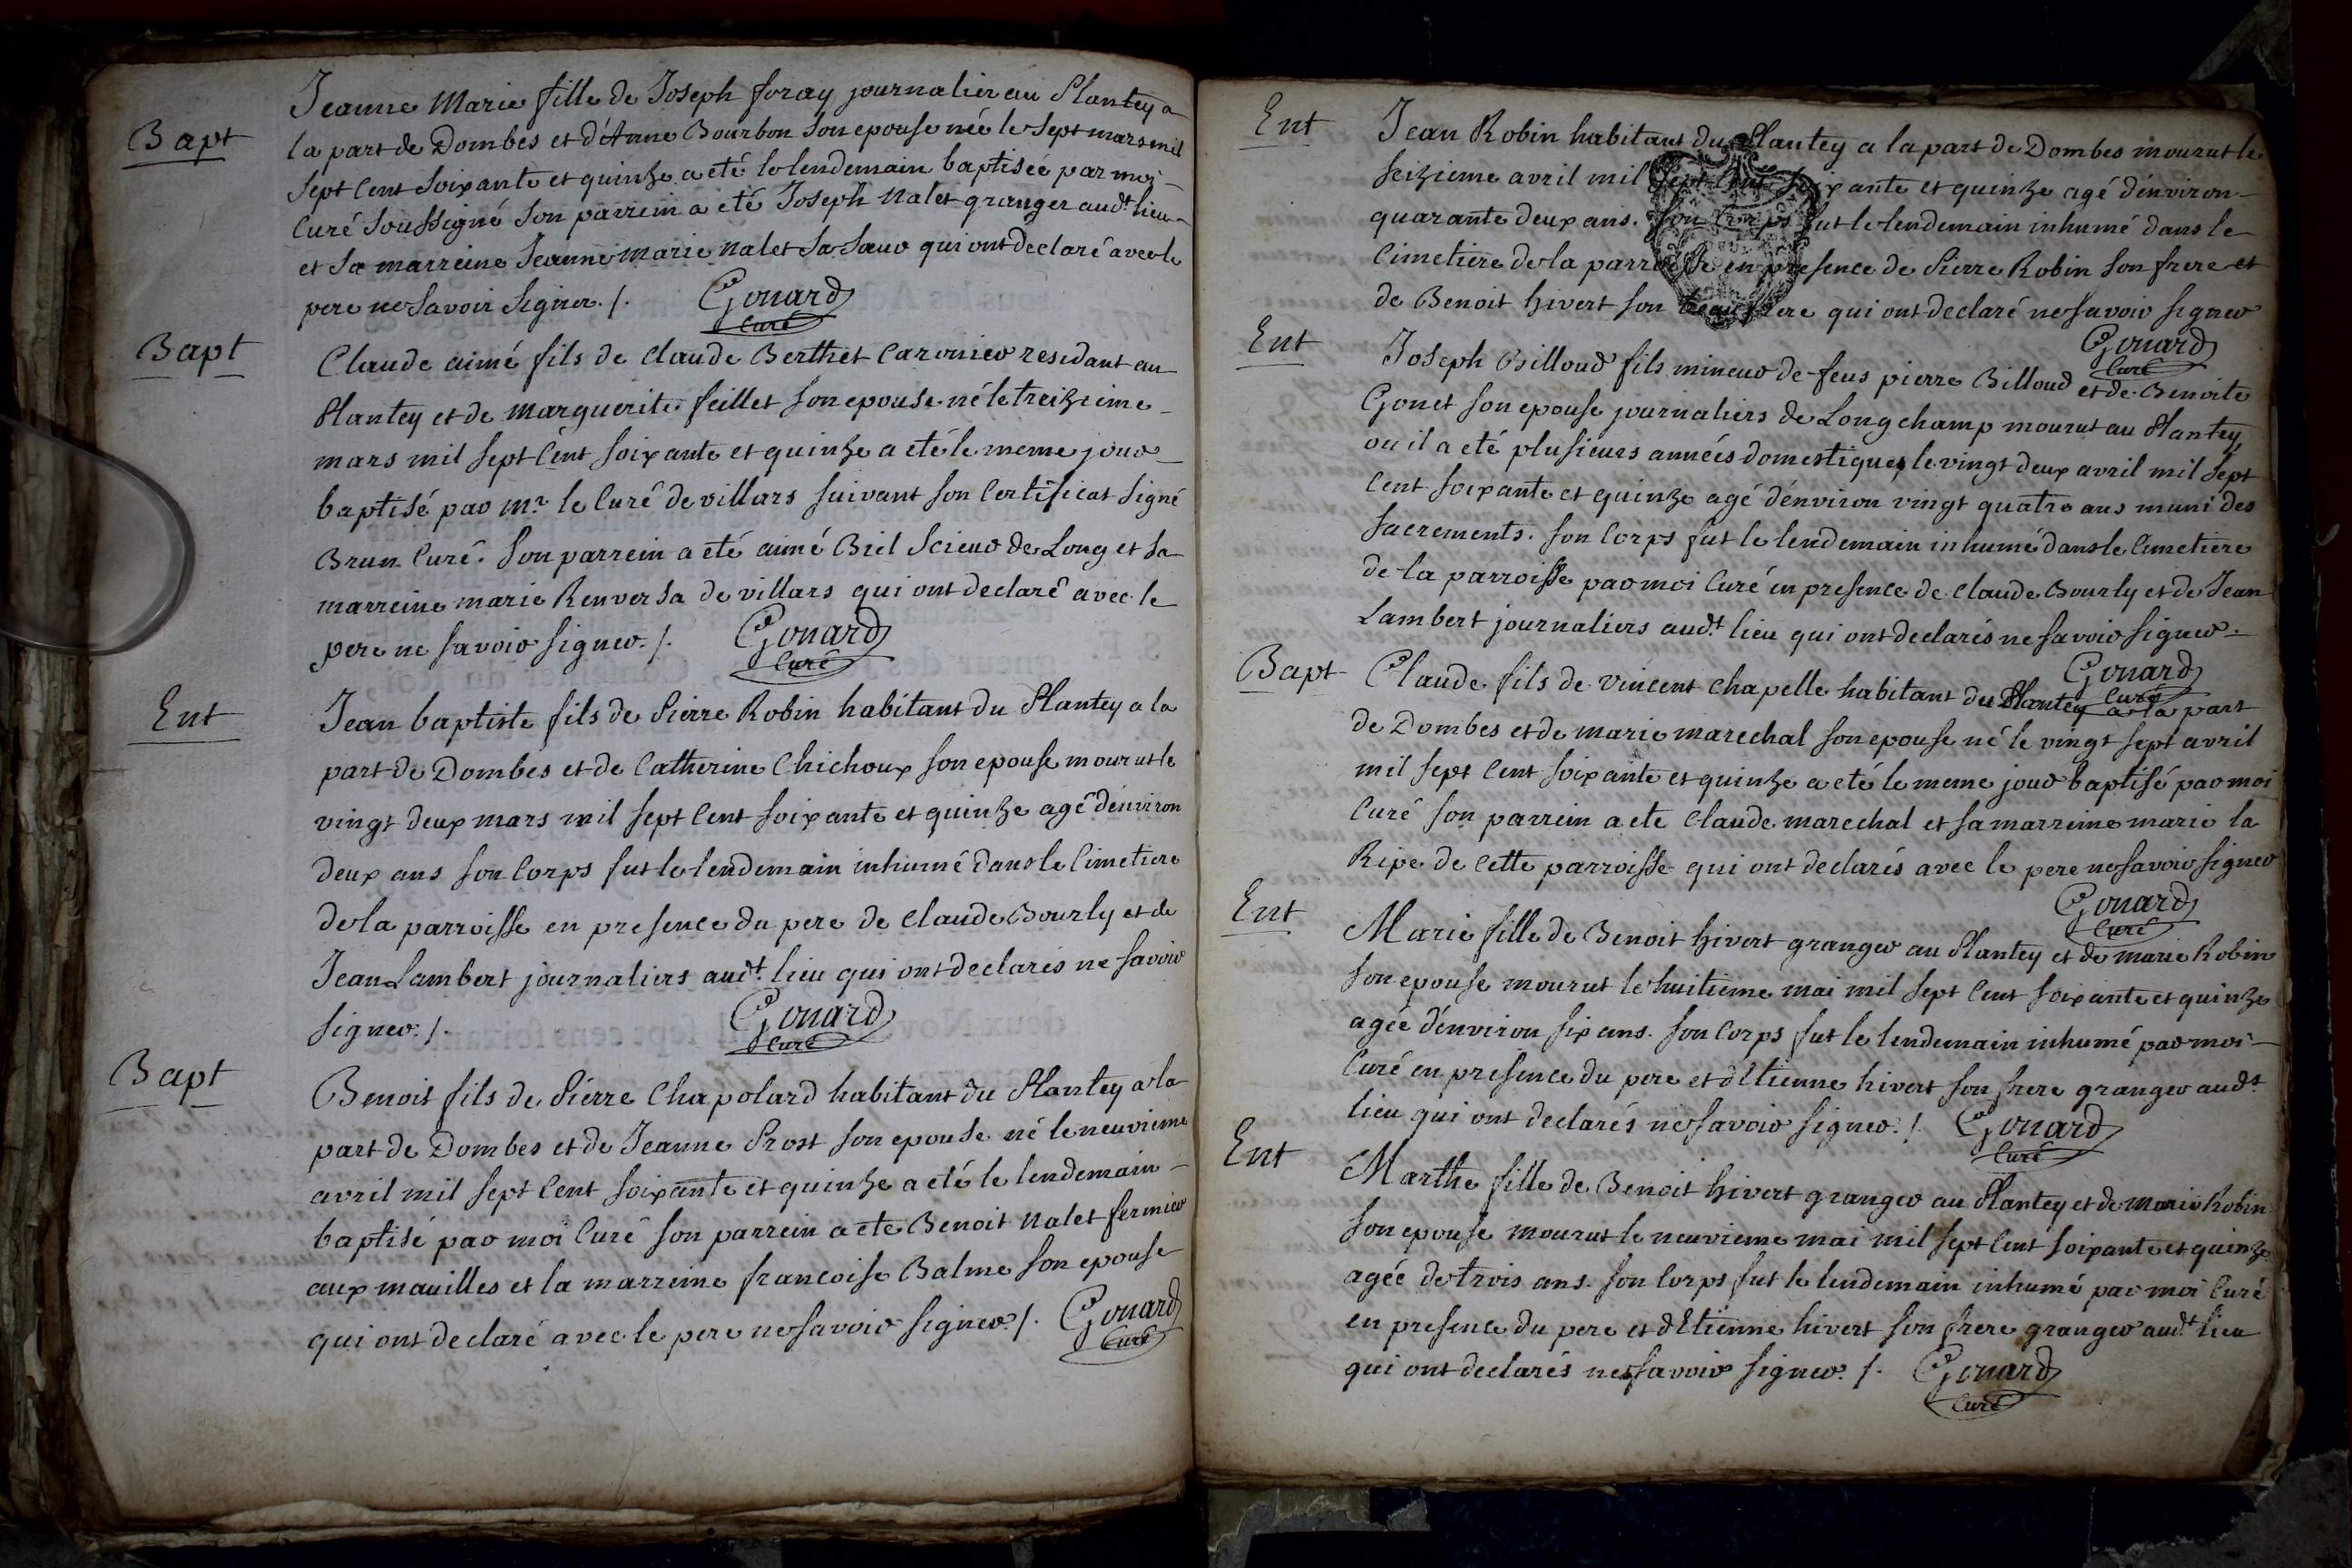 Bapt
Jeanne Marie fille de Joseph foray journalier au Plantey a
la part de Dombes et d'Anne Bourbon son epouse née le sept mars mil
sept cent soixante et quinze a eté le lendemain baptisée par moi
curé soussigné son parrein a eté Joseph Nalet granger audt lieu
et sa marreine Jeanne marie nalet sa sœur qui ont declaré avec le
pere ne savoir signer. /. Gonard
curé
Bapt
Claude aimé fils de claude Berthet residant au
Plantey et de marguerite feillet son epouse né le treizieme
mars mil sept cent soixante et quinze a eté le meme jour
baptisé par mr le curé de villars suivant son certificat signé
Brun curé. son parrein a eté aimé Biel scieur de Long et sa
marreine marie Renversa de villars qui ont declaré avec le
pere ne savoir signer. /. Gonard
curé
Ent
Jean baptiste fils de Pierre Robin habitant du Plantey a la
part de Dombes et de Catherine Chichoux son epouse mourut le
vingt deux mars mil sept cent soixante et quinze agé d'environ
deux ans son corps fut le lendemain inhumé dans le cimetiere
de la parroisse en presence du pere de claude Bourly et de
Jean Lambert journaliers audt. lieu qui ont declarés ne savoir
signer. /. Gonard
curé
Bapt
Benoit fils de Pierre Chapolard habitant du Plantey a la
part de Dombes et de Jeanne Prost son epouse né le neuvieme
avril mil sept cent soixante et quinze a eté le lendemain
baptisé par moi curé son parrein a ete Benoit Nalet fermier
aux mauilles et la marreine francoise Balme son epouse
qui ont declaré avec le pere ne savoir signer. /. Gonard
curé
Ent
Jean Robin habitant du Plantey a la part de Dombes mourut le
seizieme avril mil sept cent soixante et quinze agé d'environ
quarante deux ans. son corps fut le lendemain inhumé dans le
cimetiere de la parroisse en presence de Pierre Robin son frere et
de Benoit hivert son beaufrere qui ont declaré ne savoir signer
Gonard
curé
Ent
Joseph Billoud fils mineur de feus pierre Billoud et de Benoite
Gonet son epouse journaliers de Longchamp mourut au Plantey
ou il a eté plusieurs années domestique, le vingt deux avril mil sept
cent soixante et quinze agé d'environ vingt quatre ans muni des
sacrements. son corps fut le lendemain inhumé dans le cimetiere
de la parroisse par moi curé en presence de claude Bourly et de Jean
Lambert journaliers audt. lieu qui ont declarés ne savoir signer.
Gonard
curé
Bapt
Claude fils de vincent chapelle habitant du Plantey a la part
de Dombes et de marie marechal son epouse né le vingt sept avril
mil sept cent soixante et quinze a eté le meme jour baptisé par moi
curé son parrein a ete claude marechal et sa marreine marie la
Ripe de cette parroisse qui ont declarés avec le pere ne savoir signer
Gonard
curé
Ent
Marie fille de Benoit hivert granger au Plantey et de marie Robin
son epouse mourut le huitieme mai mil sept cent soixante et quinze
agée d'environ six ans. son corps fut le lendemain inhumé par moi
curé en presence du pere et d'Etienne hivert son frere granger audt
lieu qui ont declarés ne savoir signer. /. Gonard
curé
Ent
Marthe fille de Benoit hivert granger au Plantey et de marie Robin
son epouse mourut le neuvieme mai mil sept cent soixante et quinze
agée de trois ans. son corps fut le lendemain inhumé par moi curé
en presence du pere et d'Etienne hivert son frere granger audt lieu
qui ont declarés ne savoir signer. /. Gonard
curé